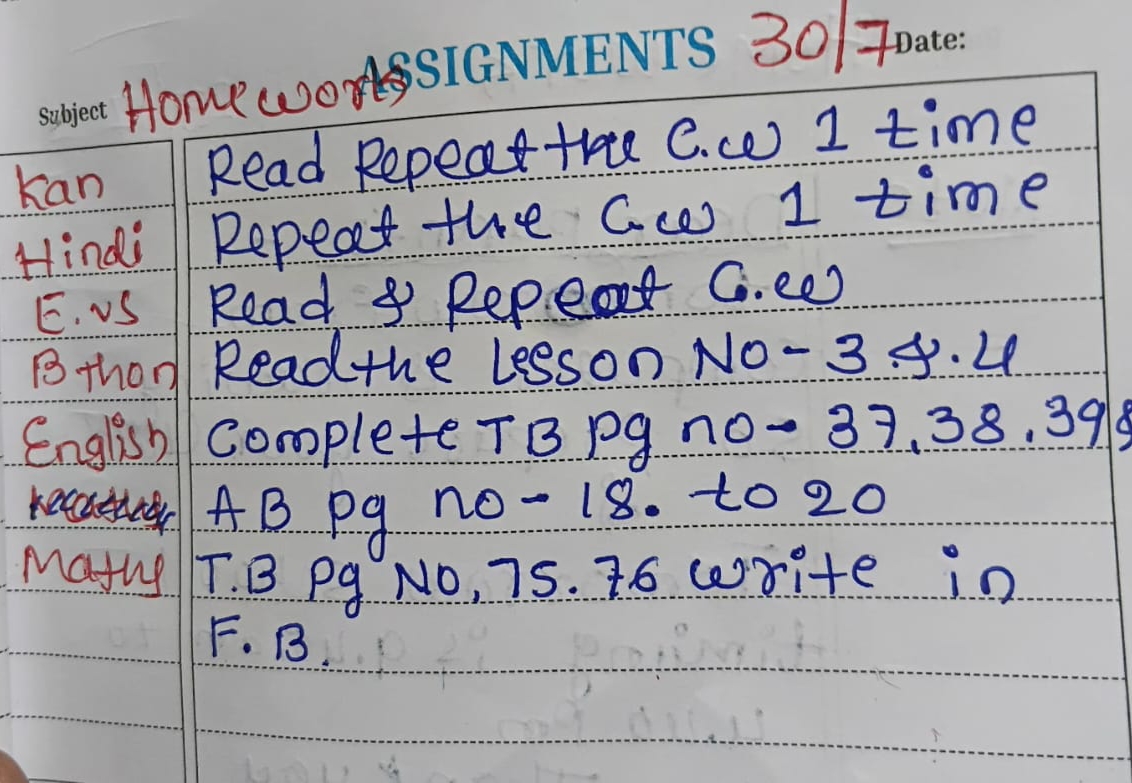 ASSIGNMENTS 30/7 Date:
Subject Homework
Kan Read Repeat the C.w 1 time
Hindi Repeat the C.w 1 time
E.vs Read & Repeat C.w
B thon Read the Lesson No - 3 & . 4
English Complete TB pg no - 37, 38, 39 &
AB pg no - 18. to 20
Maths T.B pg NO, 75. 76 write in
F. B.